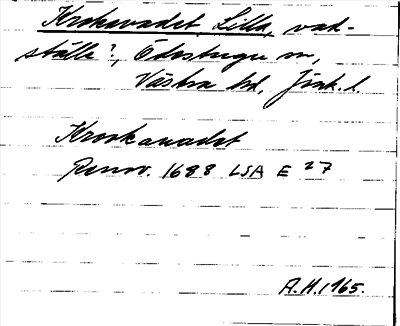 Krokavadet, Lilla, vad-
ställe?, Ödestugu sn,
Västra hd, Jönk. l.
Krookawadet
Renov. 1688 LSA E 27
A.H. 1965.